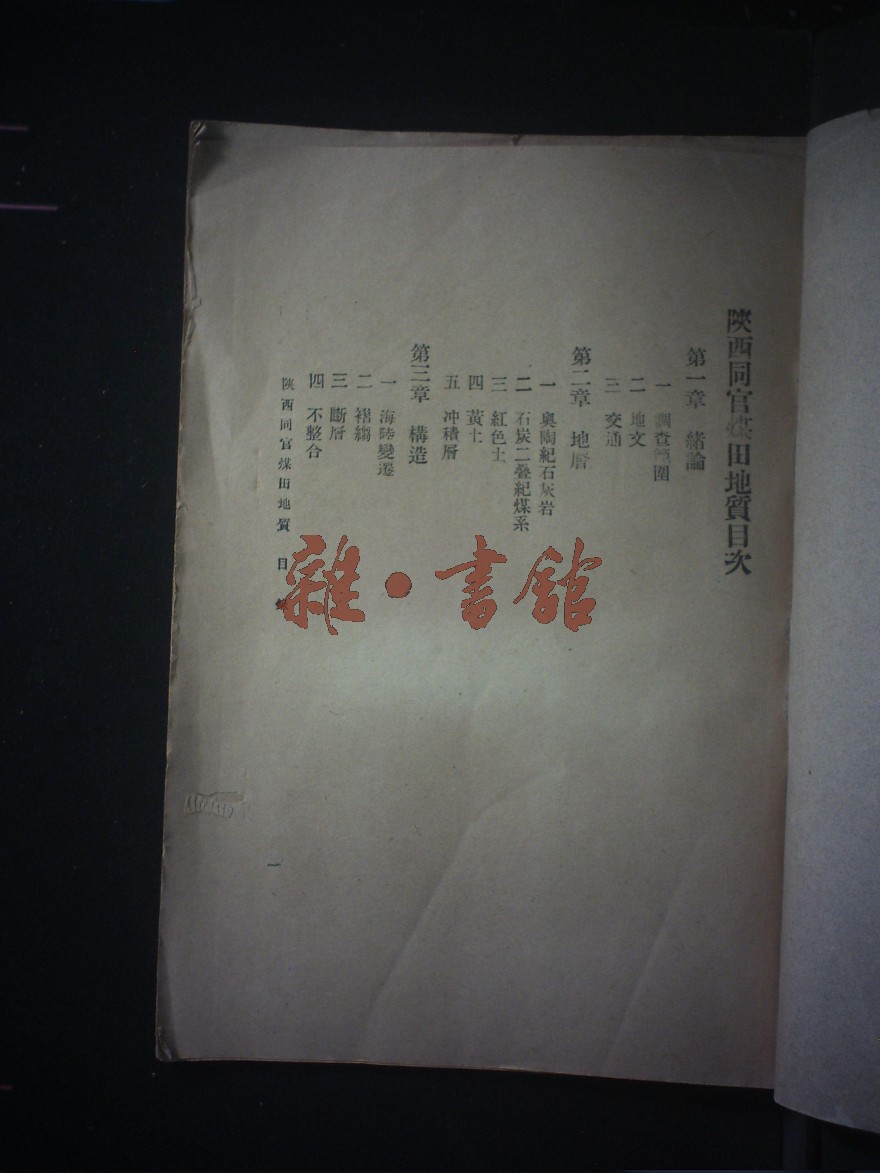 陝西同官煤田地質目次
第一章 緒論
一 調查範圍
二 地文
三 交通
第二章 地層
一 奧陶紀石灰岩
二 石炭二疊紀煤系
三 紅色土
四 黃土
五 冲積層
第三章 構造
一 海陸變遷
二 褶縐
三 斷層
四 不整合
陝西同官煤田地質 目
一
雜·書館